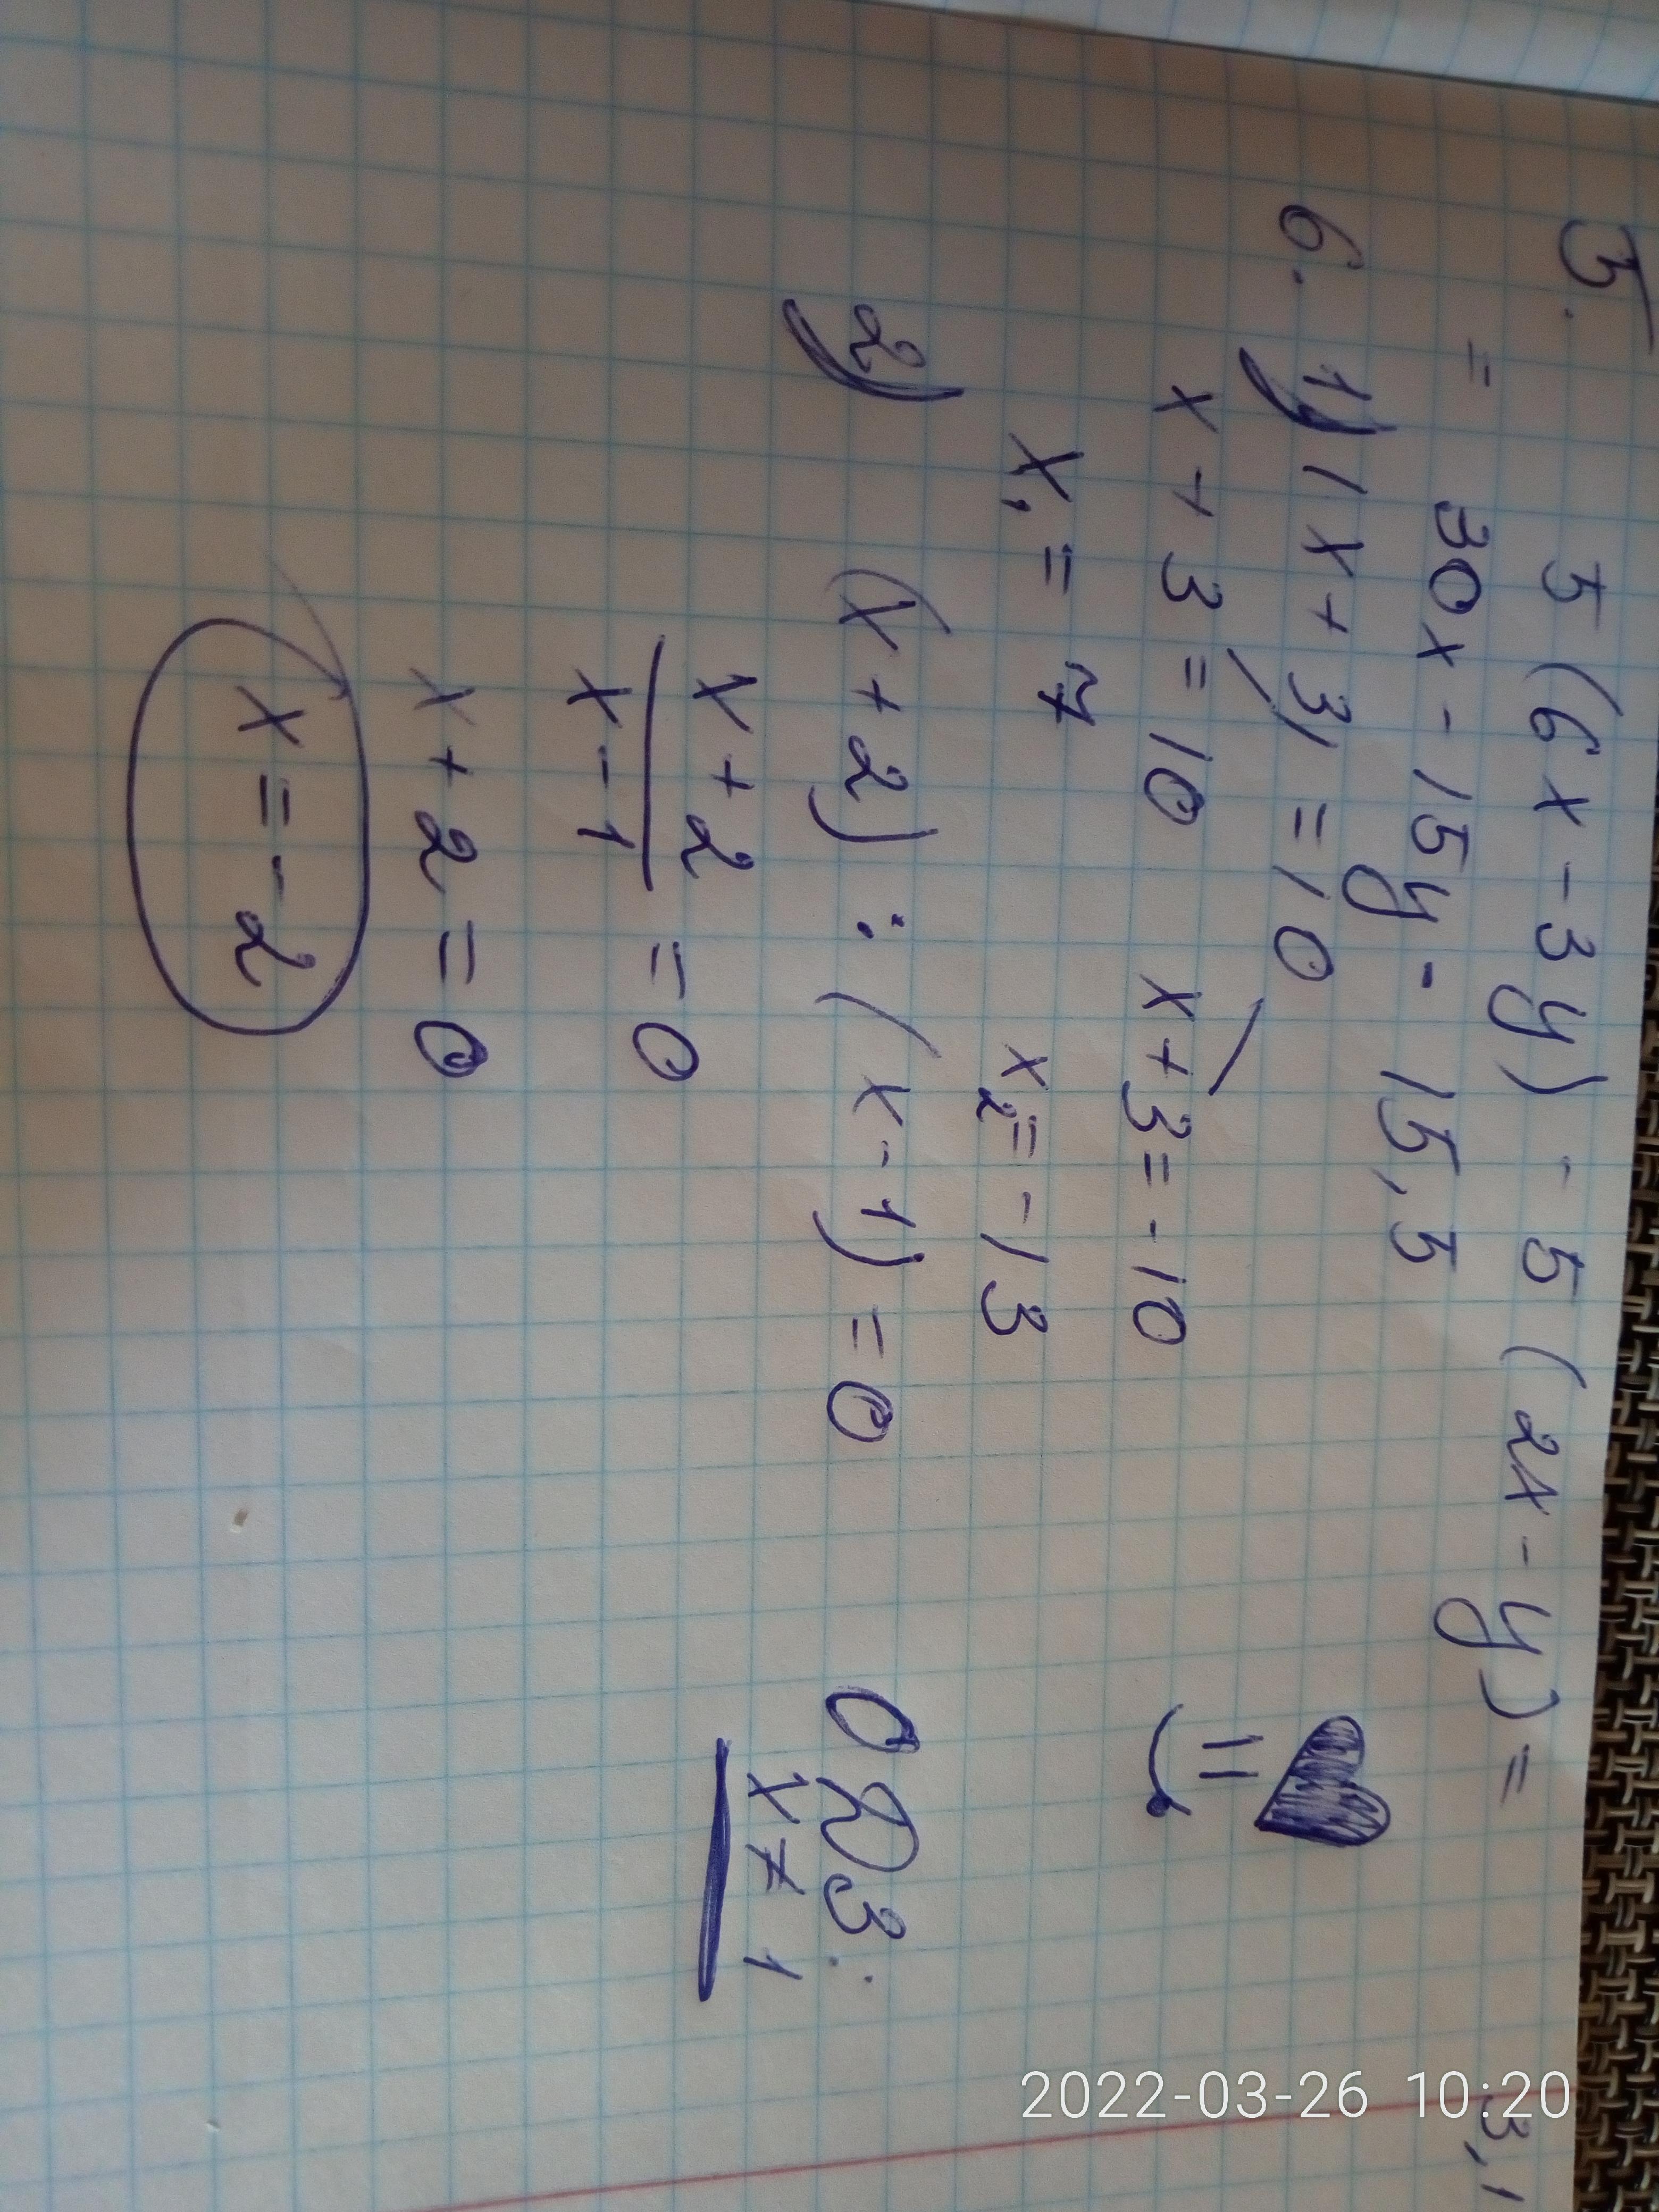 5. 5(6x-3y) - 5(2x-y) =
= 30x - 15y - 15,5
3,1
6. 1) |x+3| = 10
x+3=10 x+3=-10
x₁=7 x₂=-13
2) (x+2) : (x-1) = 0 ОДЗ:
x+2 / x-1 = 0 x≠1
x+2=0
x=-2
2022-03-26 10:20